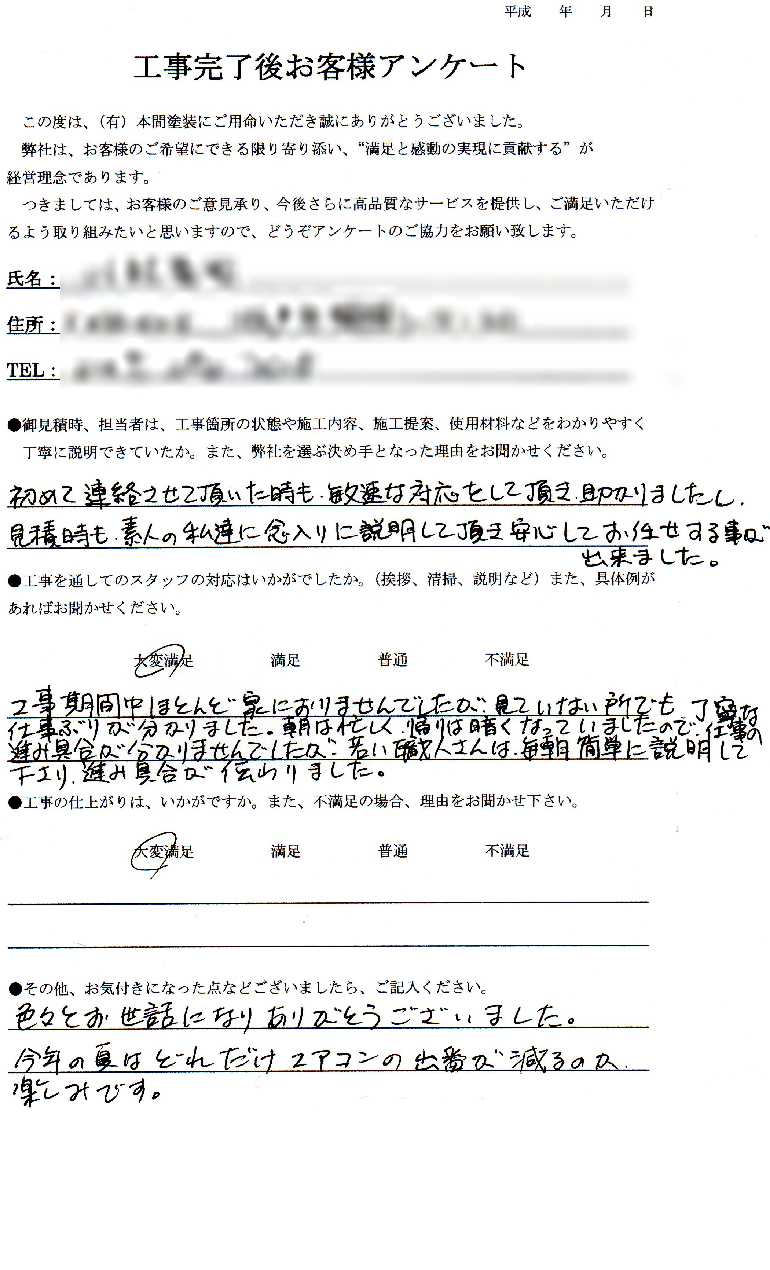 平成　年　月　日
工事完了後お客様アンケート
この度は、（有）本間塗装にご用命いただき誠にありがとうございました。
弊社は、お客様のご希望にできる限り寄り添い、“満足と感動の実現に貢献する”が
経営理念であります。
つきましては、お客様のご意見承り、今後さらに高品質なサービスを提供し、ご満足いただけ
るよう取り組みたいと思いますので、どうぞアンケートのご協力をお願い致します。
氏名：
住所：
TEL：
●御見積時、担当者は、工事箇所の状態や施工内容、施工提案、使用材料などをわかりやすく
丁寧に説明できていたか。また、弊社を選ぶ決め手となった理由をお聞かせください。
初めて連絡させて頂いた時も、敏速な対応をして頂き助かりましたし、
見積時も、素人の私達に念入りに説明して頂き安心してお任せする事が
出来ました。
●工事を通してのスタッフの対応はいかがでしたか。（挨拶、清掃、説明など）また、具体例が
あればお聞かせください。
大変満足　満足　普通　不満足
工事期間中ほとんど家におりませんでしたが、見ていない所でも、丁寧な
仕事ぶりが分かりました。朝は忙しく、帰りは暗くなっていましたので、仕事の
進み具合が分かりませんでしたが、若い職人さんは、毎朝簡単に説明して
下さり、進み具合が伝わりました。
●工事の仕上がりは、いかがですか。また、不満足の場合、理由をお聞かせ下さい。
大変満足　満足　普通　不満足
●その他、お気付きになった点などございましたら、ご記入ください。
色々とお世話になりありがとうございました。
今年の夏はどれだけエアコンの出番が減るのか、
楽しみです。